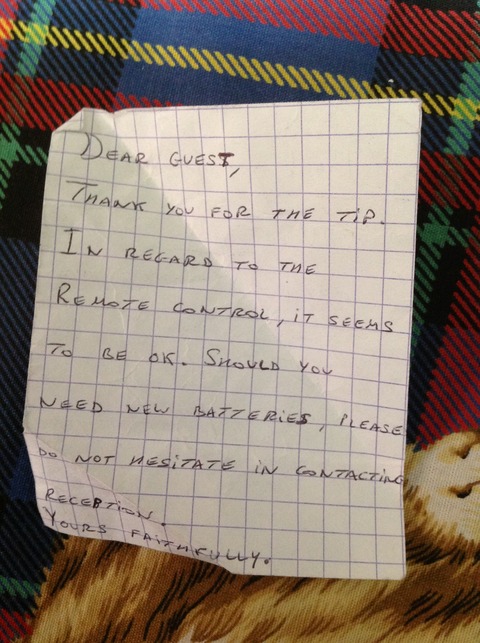 DEAR GUEST,
THANK YOU FOR THE TIP.
IN REGARD TO THE
REMOTE CONTROL, IT SEEMS
TO BE OK. SHOULD YOU
NEED NEW BATTERIES, PLEASE
DO NOT HESITATE IN CONTACTING
RECEPTION.
YOURS FAITHFULLY.